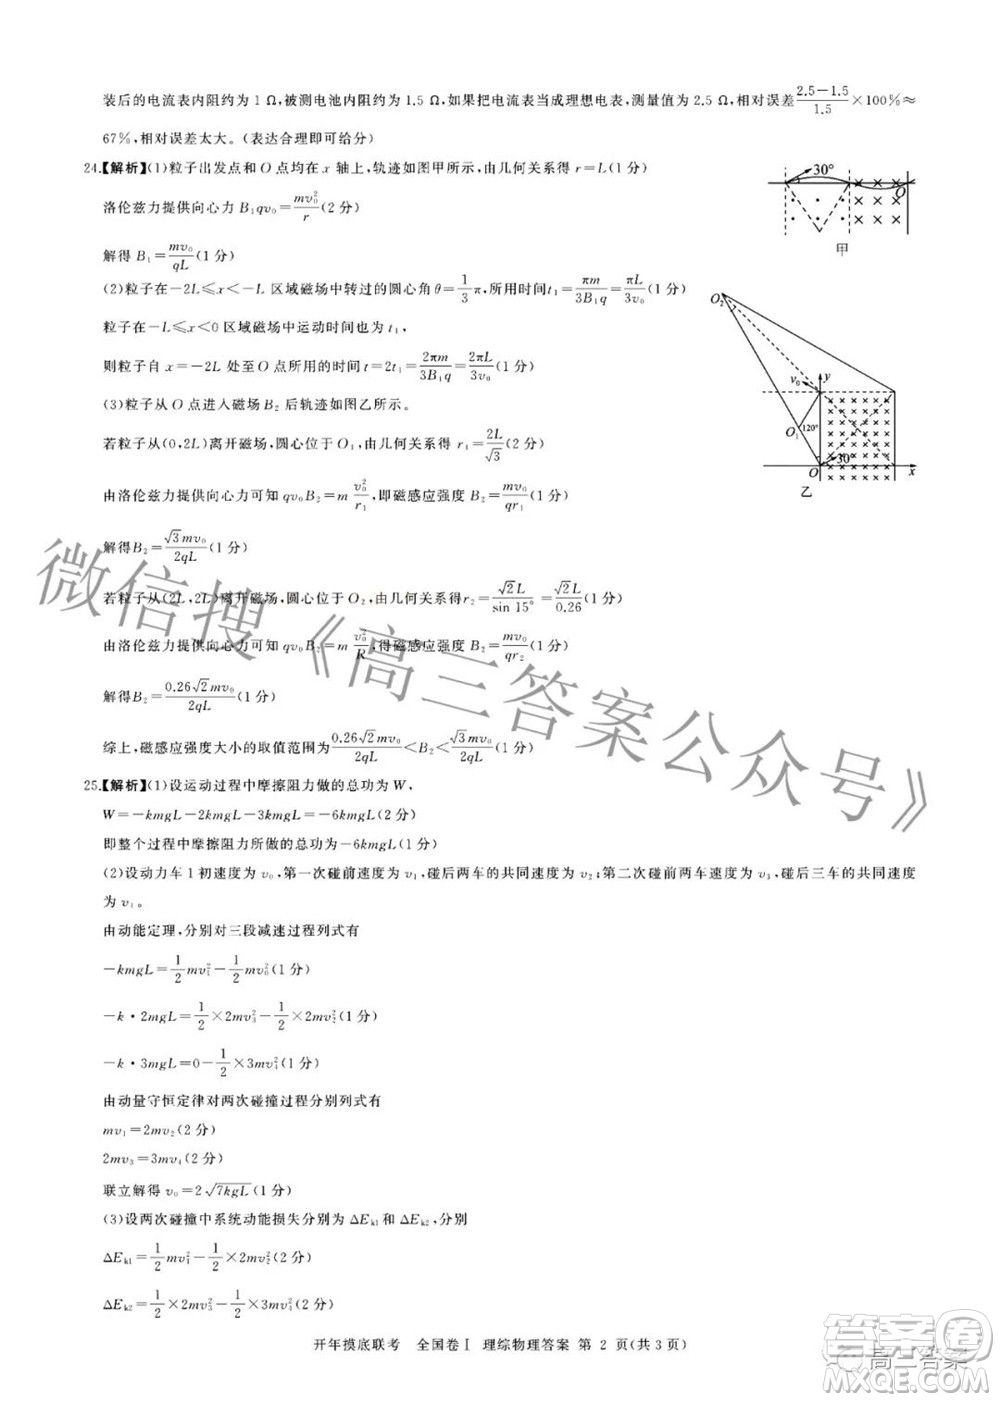 装后的电流表内阻约为 1 Ω,被测电池内阻约为 1.5 Ω,如果把电流表当成理想电表,测量值为 2.5 Ω,相对误差(2.5−1.5)/1.5×100%≈
67%,相对误差太大。(表达合理即可给分)
24.【解析】(1)粒子出发点和 O 点均在 x 轴上,轨迹如图甲所示,由几何关系得 r=L(1 分)
洛伦兹力提供向心力 B₁qv₀=mv₀²/r(2 分)
解得 B₁=mv₀/qL(1 分)
30°
O
甲
(2)粒子在−2L≤x<−L 区域磁场中转过的圆心角 θ=1/3π,所用时间t₁=πm/3B₁q=πL/3v₀(1 分)
粒子在−L≤x<0 区域磁场中运动时间也为 t₁,
则粒子自 x=−2L 处至 O 点所用的时间 t=2t₁=2πm/3B₁q=2πL/3v₀(1 分)
(3)粒子从 O 点进入磁场 B₂ 后轨迹如图乙所示。
若粒子从(0,2L)离开磁场,圆心位于 O₁,由几何关系得 r₁=2L/√3(2 分)
由洛伦兹力提供向心力可知 qv₀B₂=m v₀²/r₁,即磁感应强度 B₂=mv₀/qr₁(1 分)
O₂
v₀
y
O₁
120°
O
30°
x
乙
解得B₂=√3mv₀/2qL(1 分)
若粒子从(2L,2L)离开磁场,圆心位于 O₂,由几何关系得r₂=√2L/sin 15°=√2L/0.26(1 分)
由洛伦兹力提供向心力可知 qv₀B₂=m v₀²/R,得磁感应强度 B₂=mv₀/qr₂(1 分)
解得B₂=0.26√2mv₀/2qL(1 分)
综上,磁感应强度大小的取值范围为0.26√2mv₀/2qL<B₂<√3mv₀/2qL(1 分)
25.【解析】(1)设运动过程中摩擦阻力做的总功为 W,
W=−kmgL−2kmgL−3kmgL=−6kmgL(2 分)
即整个过程中摩擦阻力所做的总功为−6kmgL(1 分)
(2)设动力车 1 初速度为 v₀,第一次碰前速度为 v₁,碰后两车的共同速度为 v₂;第二次碰前两车速度为 v₃,碰后三车的共同速度
为 v₁。
由动能定理,分别对三段减速过程列式有
−kmgL=1/2mv₁²−1/2mv₀²(1 分)
−k·2mgL=1/2×2mv₃²−1/2×2mv₂²(1 分)
−k·3mgL=0−1/2×3mv₄²(1 分)
由动量守恒定律对两次碰撞过程分别列式有
mv₁=2mv₂(2 分)
2mv₃=3mv₄(2 分)
联立解得 v₀=2√7kgL(1 分)
(3)设两次碰撞中系统动能损失分别为 ΔEₖ₁和 ΔEₖ₂,分别
ΔEₖ₁=1/2mv₁²−1/2×2mv₂²(2 分)
ΔEₖ₂=1/2×2mv₃²−1/2×3mv₄²(2 分)
开年摸底联考 全国卷Ⅰ 理综物理答案 第 2 页(共 3 页)
微信搜《高三答案公众号》
高三答案
答案圈
MXQE.COM